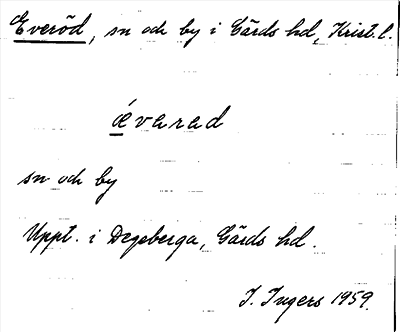 Everöd, sn och by i Gärds hd, Krist. l.
ǽvarad
sn och by
Uppt. i Degeberga, Gärds hd.
I. Ingers 1959.